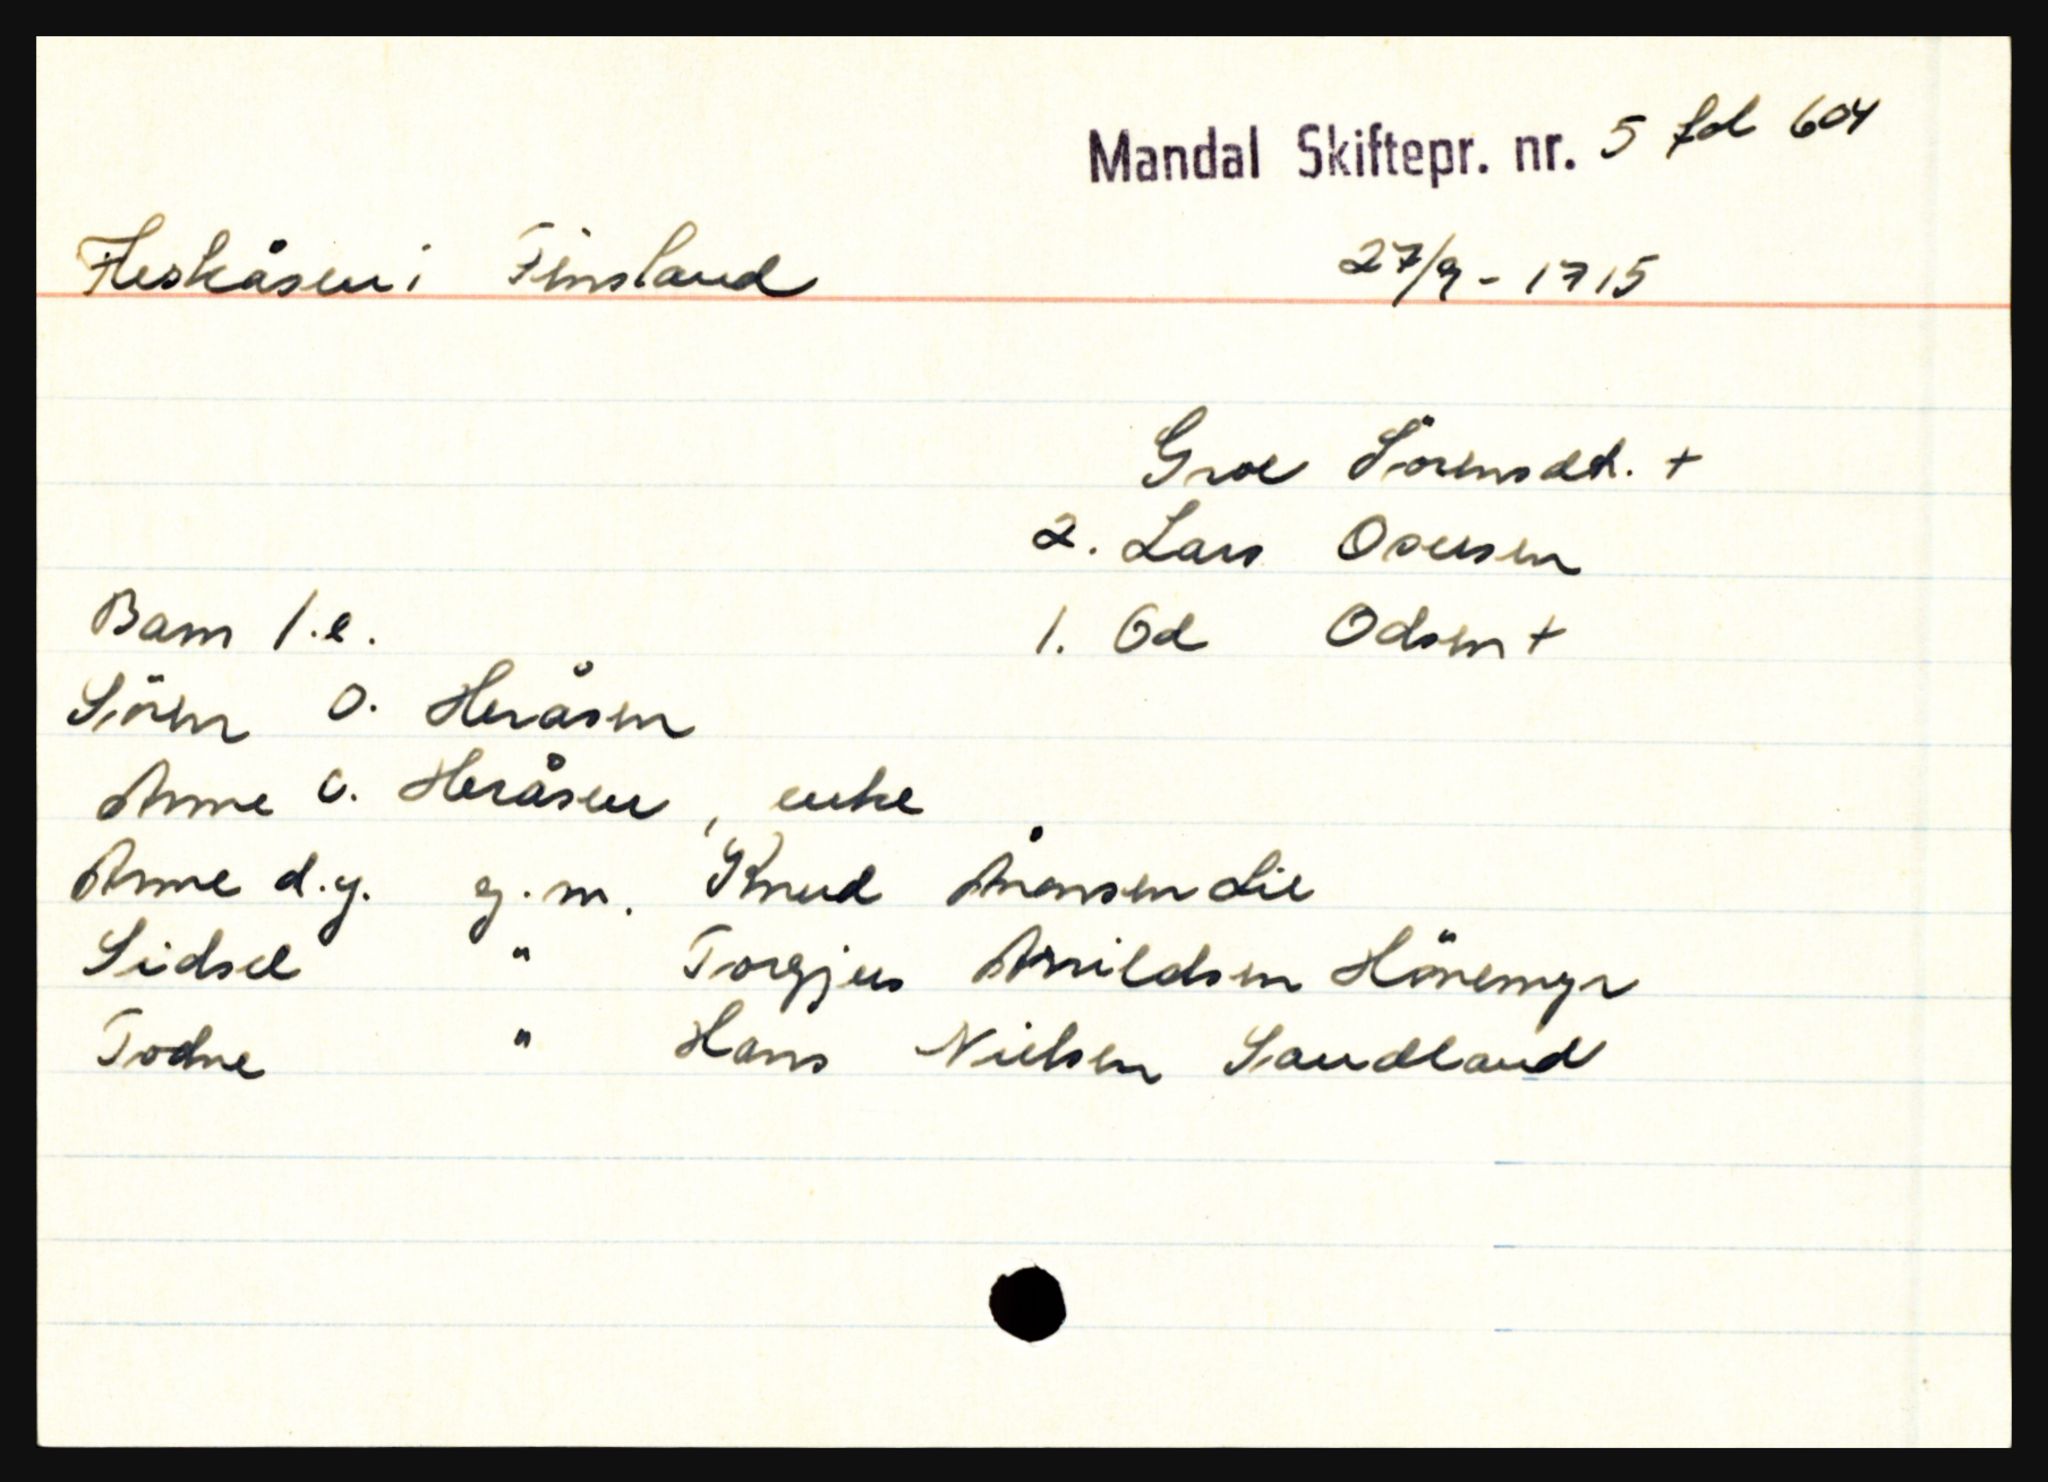 Mandal Skiftepr. nr. 5 fol 604
Fleskåsen i Finsland 27/9 - 1715
Groe Sörensdt. +
2. Lars Osersen
Barn 1.e. 1. Od Odsen +
Sören O. Heråsen
Anne O. Heråsen, enke
Anne d.y. g.m. Knud Ånonsen Lie
Sidsel " Torgjus Arnildsen Hönemyr
Todne " Hans Nielsen Saudland